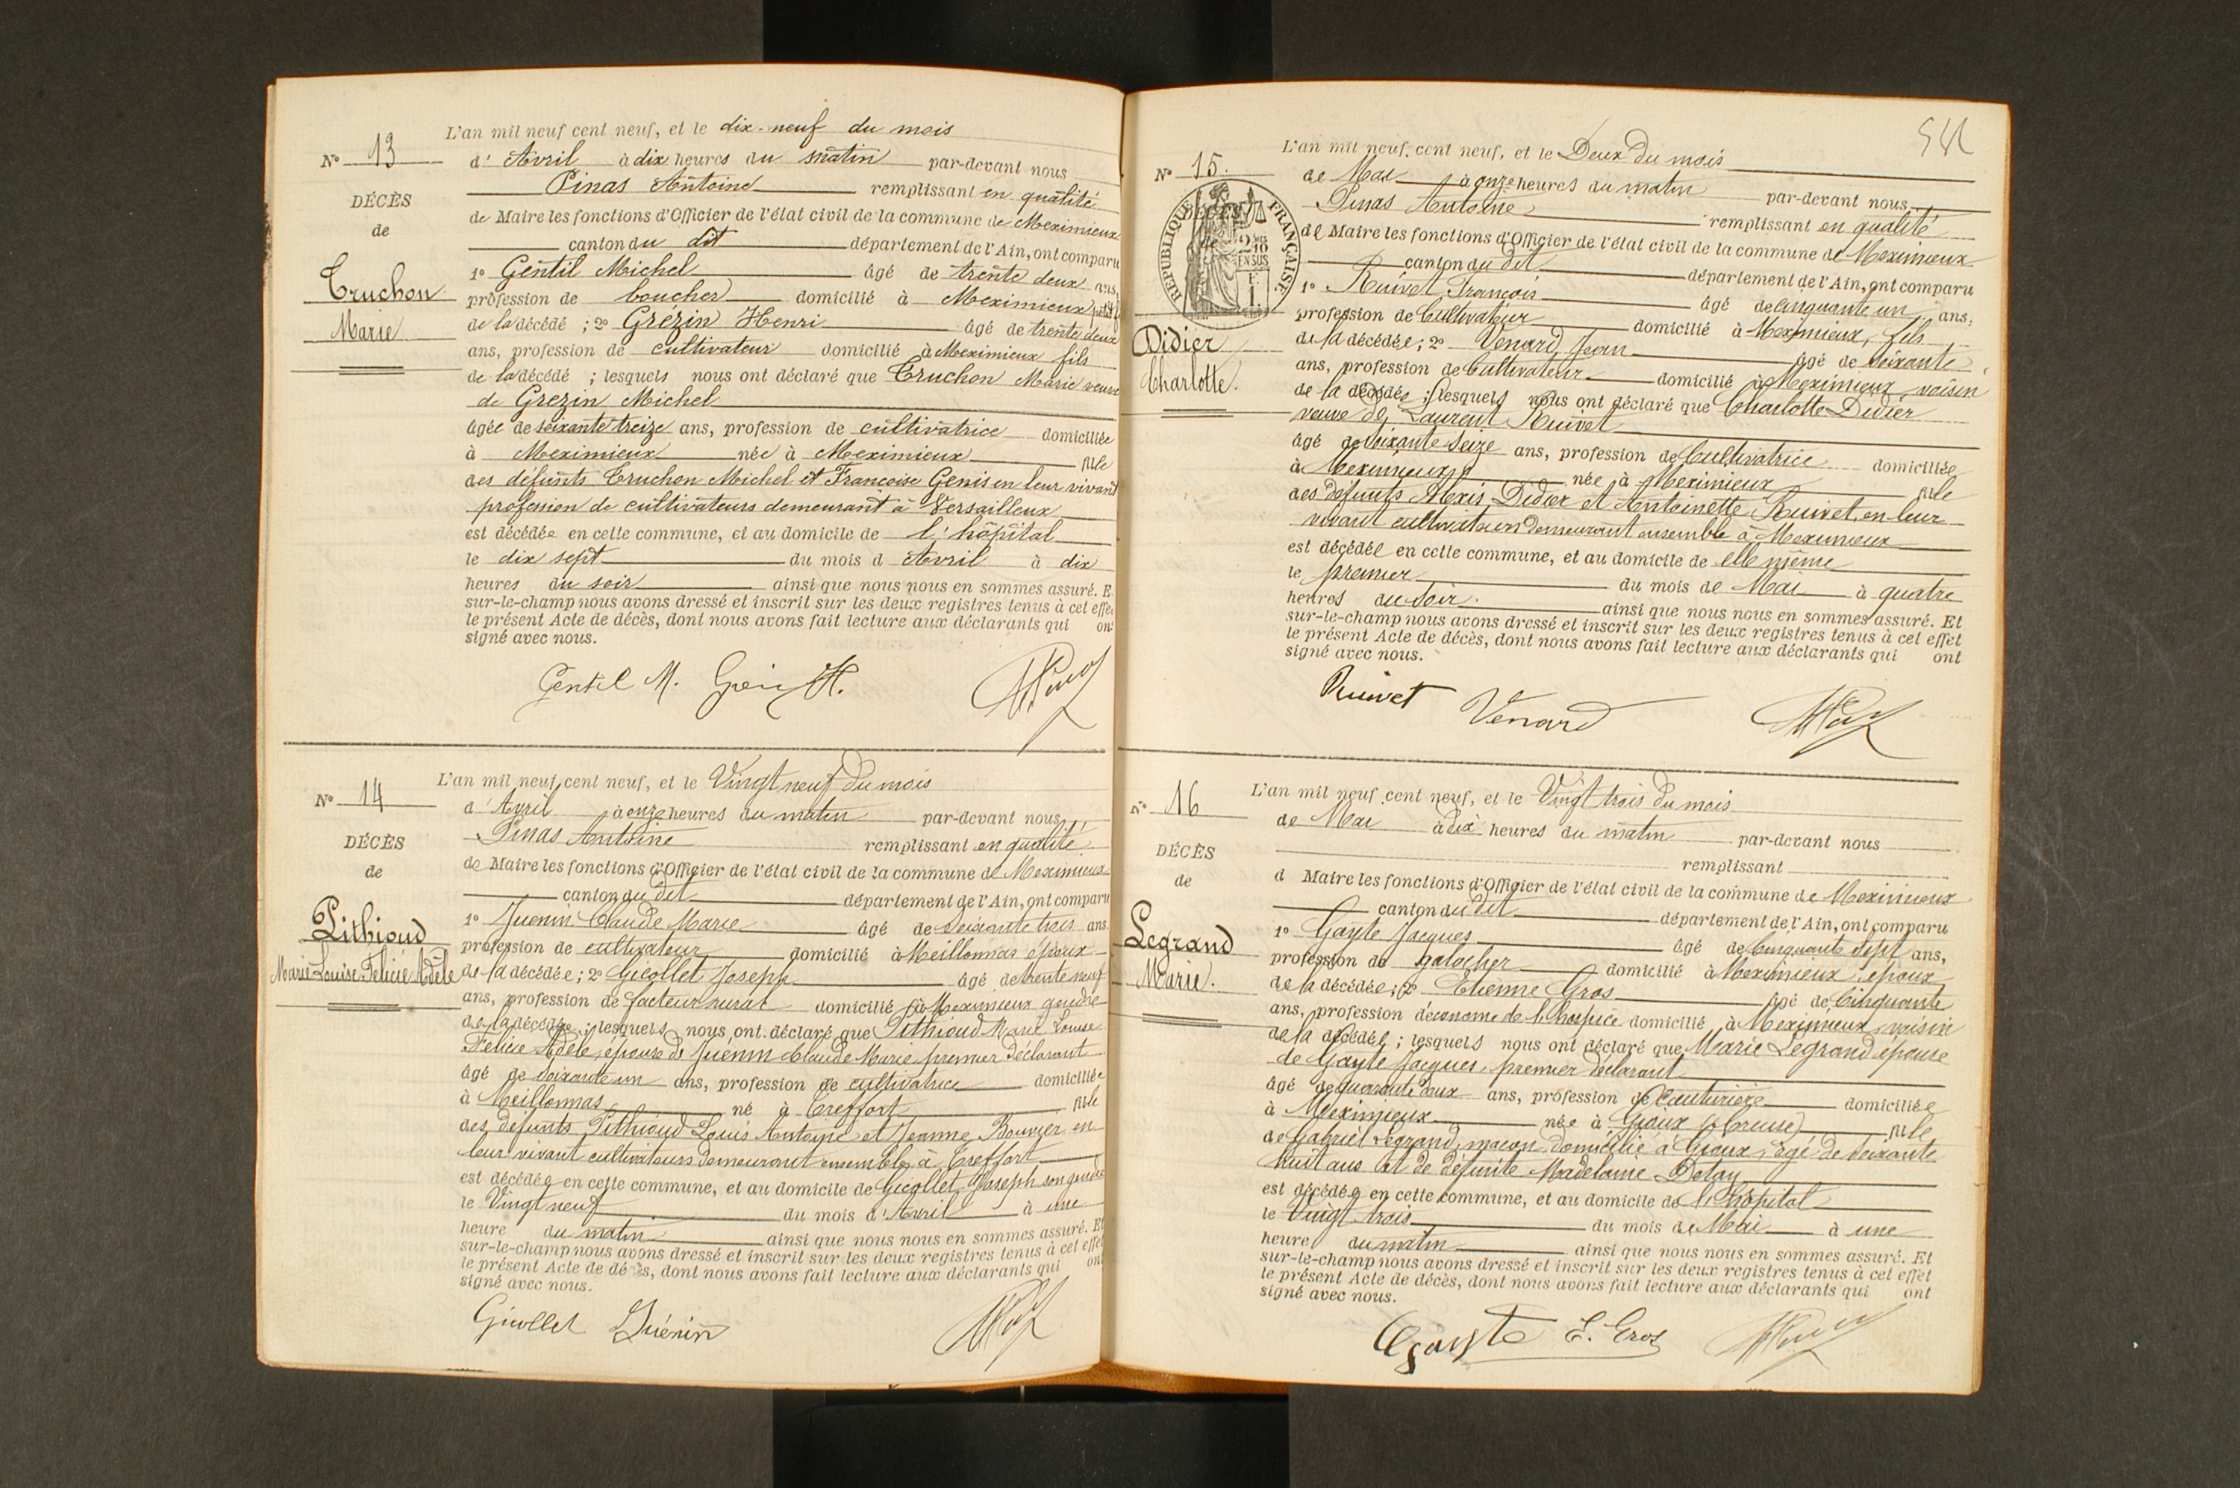 L'an mil neuf cent neuf, et le dix-neuf du mois
N° 13
d'Avril à dix heures du matin par-devant nous
Pinas Antoine remplissant en qualité
DÉCÈS
de Maire les fonctions d'Officier de l'état civil de la commune de Meximieux
de
canton du dit département de l'Ain, ont comparu
Truchon
Marie
1° Gentil Michel âgé de trente deux ans,
profession de boucher domicilié à Meximieux
de la décédé ; 2° Grezin Henri âgé de trente deux
ans, profession de cultivateur domicilié à Meximieux fils
de la décédé ; lesquels nous ont déclaré que Truchon Marie veuve
de Grezin Michel
âgée de soixante treize ans, profession de cultivatrice domiciliée
à Meximieux née à Meximieux fille
des défunts Truchon Michel et Francoise Genis en leur vivant
profession de cultivateurs demeurant à Versailleux
est décédée en cette commune, et au domicile de l'hôpital
le dix sept du mois d Avril à dix
heures du soir ainsi que nous nous en sommes assuré. E
sur-le-champ nous avons dressé et inscrit sur les deux registres tenus à cet effe
le présent Acte de décès, dont nous avons fait lecture aux déclarants qui on
signé avec nous.
Gentil M.
L'an mil neuf cent neuf, et le Vingt neuf du mois
N° 14
d'Avril à onze heures du matin par-devant nous
Pinas Antoine remplissant en qualité
DÉCÈS
de Maire les fonctions d'Officier de l'état civil de la commune de Meximieux
de
canton du dit département de l'Ain, ont comparu
Pithioud
Marie Louise Felicie Adèle
1° Juenin Claude Marie âgé de soixante trois ans
profession de cultivateur domicilié à Meillonnas époux
de la décédée ; 2° Gicollet Joseph âgé de trente neuf
ans, profession de facteur rural domicilié à Meximieux gendre
de la décédée ; lesquels nous ont déclaré que Pithioud Marie Louise
Felicie Adèle, épouse de Juenin Claude Marie premier déclarant
âgé de soixante un ans, profession de cultivatrice domiciliée
à Meillonnas né à Treffort fille
des défunts Pithioud Louis Antoine et Jeanne Bouvier en
leur vivant cultivateurs demeurant ensemble à Treffort
est décédée en cette commune, et au domicile de Gicollet Joseph son gendre
le Vingt neuf du mois d'Avril à une
heure du matin ainsi que nous nous en sommes assuré. Et
sur-le-champ nous avons dressé et inscrit sur les deux registres tenus à cet effe
le présent Acte de décès, dont nous avons fait lecture aux déclarants qui on
signé avec nous.
Gicollet Juénin
541
L'an mil neuf cent neuf, et le Deux du mois
N° 15.
de Mai à onze heures du matin par-devant nous
Pinas Antoine remplissant en qualité
DÉCÈS
RÉPUBLIQUE FRANÇAISE
2/10 EN SUS
de Maire les fonctions d'Officier de l'état civil de la commune de Meximieux
canton du dit département de l'Ain, ont comparu
1° Ruivet François âgé de cinquante un ans,
profession de Cultivateur domicilié à Meximieux, fils
Didier
Charlotte.
de la décédée ; 2° Venard Jean âgé de soixante
ans, profession de Cultivateur domicilié à Meximieux voisin
de la décédée ; lesquels nous ont déclaré que Charlotte Didier
veuve de Laurent Ruivet
âgé de soixante seize ans, profession de Cultivatrice domiciliée
à Meximieux née à Meximieux fille
des défunts Alexis Didier et Antoinette Ruivet, en leur
vivant cultivateurs demeurant ensemble à Meximieux
est décédée en cette commune, et au domicile de elle même
le premier du mois de Mai à quatre
heures du soir. ainsi que nous nous en sommes assuré. Et
sur-le-champ nous avons dressé et inscrit sur les deux registres tenus à cet effet
le présent Acte de décès, dont nous avons fait lecture aux déclarants qui ont
signé avec nous.
Ruivet Venard
L'an mil neuf cent neuf, et le Vingt trois du mois
N° 16
de Mai à dix heures du matin par-devant nous
remplissant
DÉCÈS
de
d Maire les fonctions d'Officier de l'état civil de la commune de Meximieux
canton du dit département de l'Ain, ont comparu
Legrand
Marie.
1° Gayte Jacques âgé de Cinquante sept ans,
profession de galocher domicilié à Meximieux, époux
de la décédée ; 2° Etienne Gros âgé de Cinquante
ans, profession d'économe de l'hospice domicilié à Meximieux voisin
de la décédée ; lesquels nous ont déclaré que Marie Legrand épouse
de Gayte Jacques, premier déclarant
âgé de quarante deux ans, profession de Couturière domiciliée
à Meximieux née à Gioux (Creuse) fille
de Gabriel Legrand, maçon domicilié à Gioux, âgé de soixante
huit ans et de défunte Madelaine Delay
est décédée en cette commune, et au domicile de l'hôpital
le Vingt trois du mois de Mai à une
heure du matin ainsi que nous nous en sommes assuré. Et
sur-le-champ nous avons dressé et inscrit sur les deux registres tenus à cet effet
le présent Acte de décès, dont nous avons fait lecture aux déclarants qui ont
signé avec nous.
Gayte E. Gros